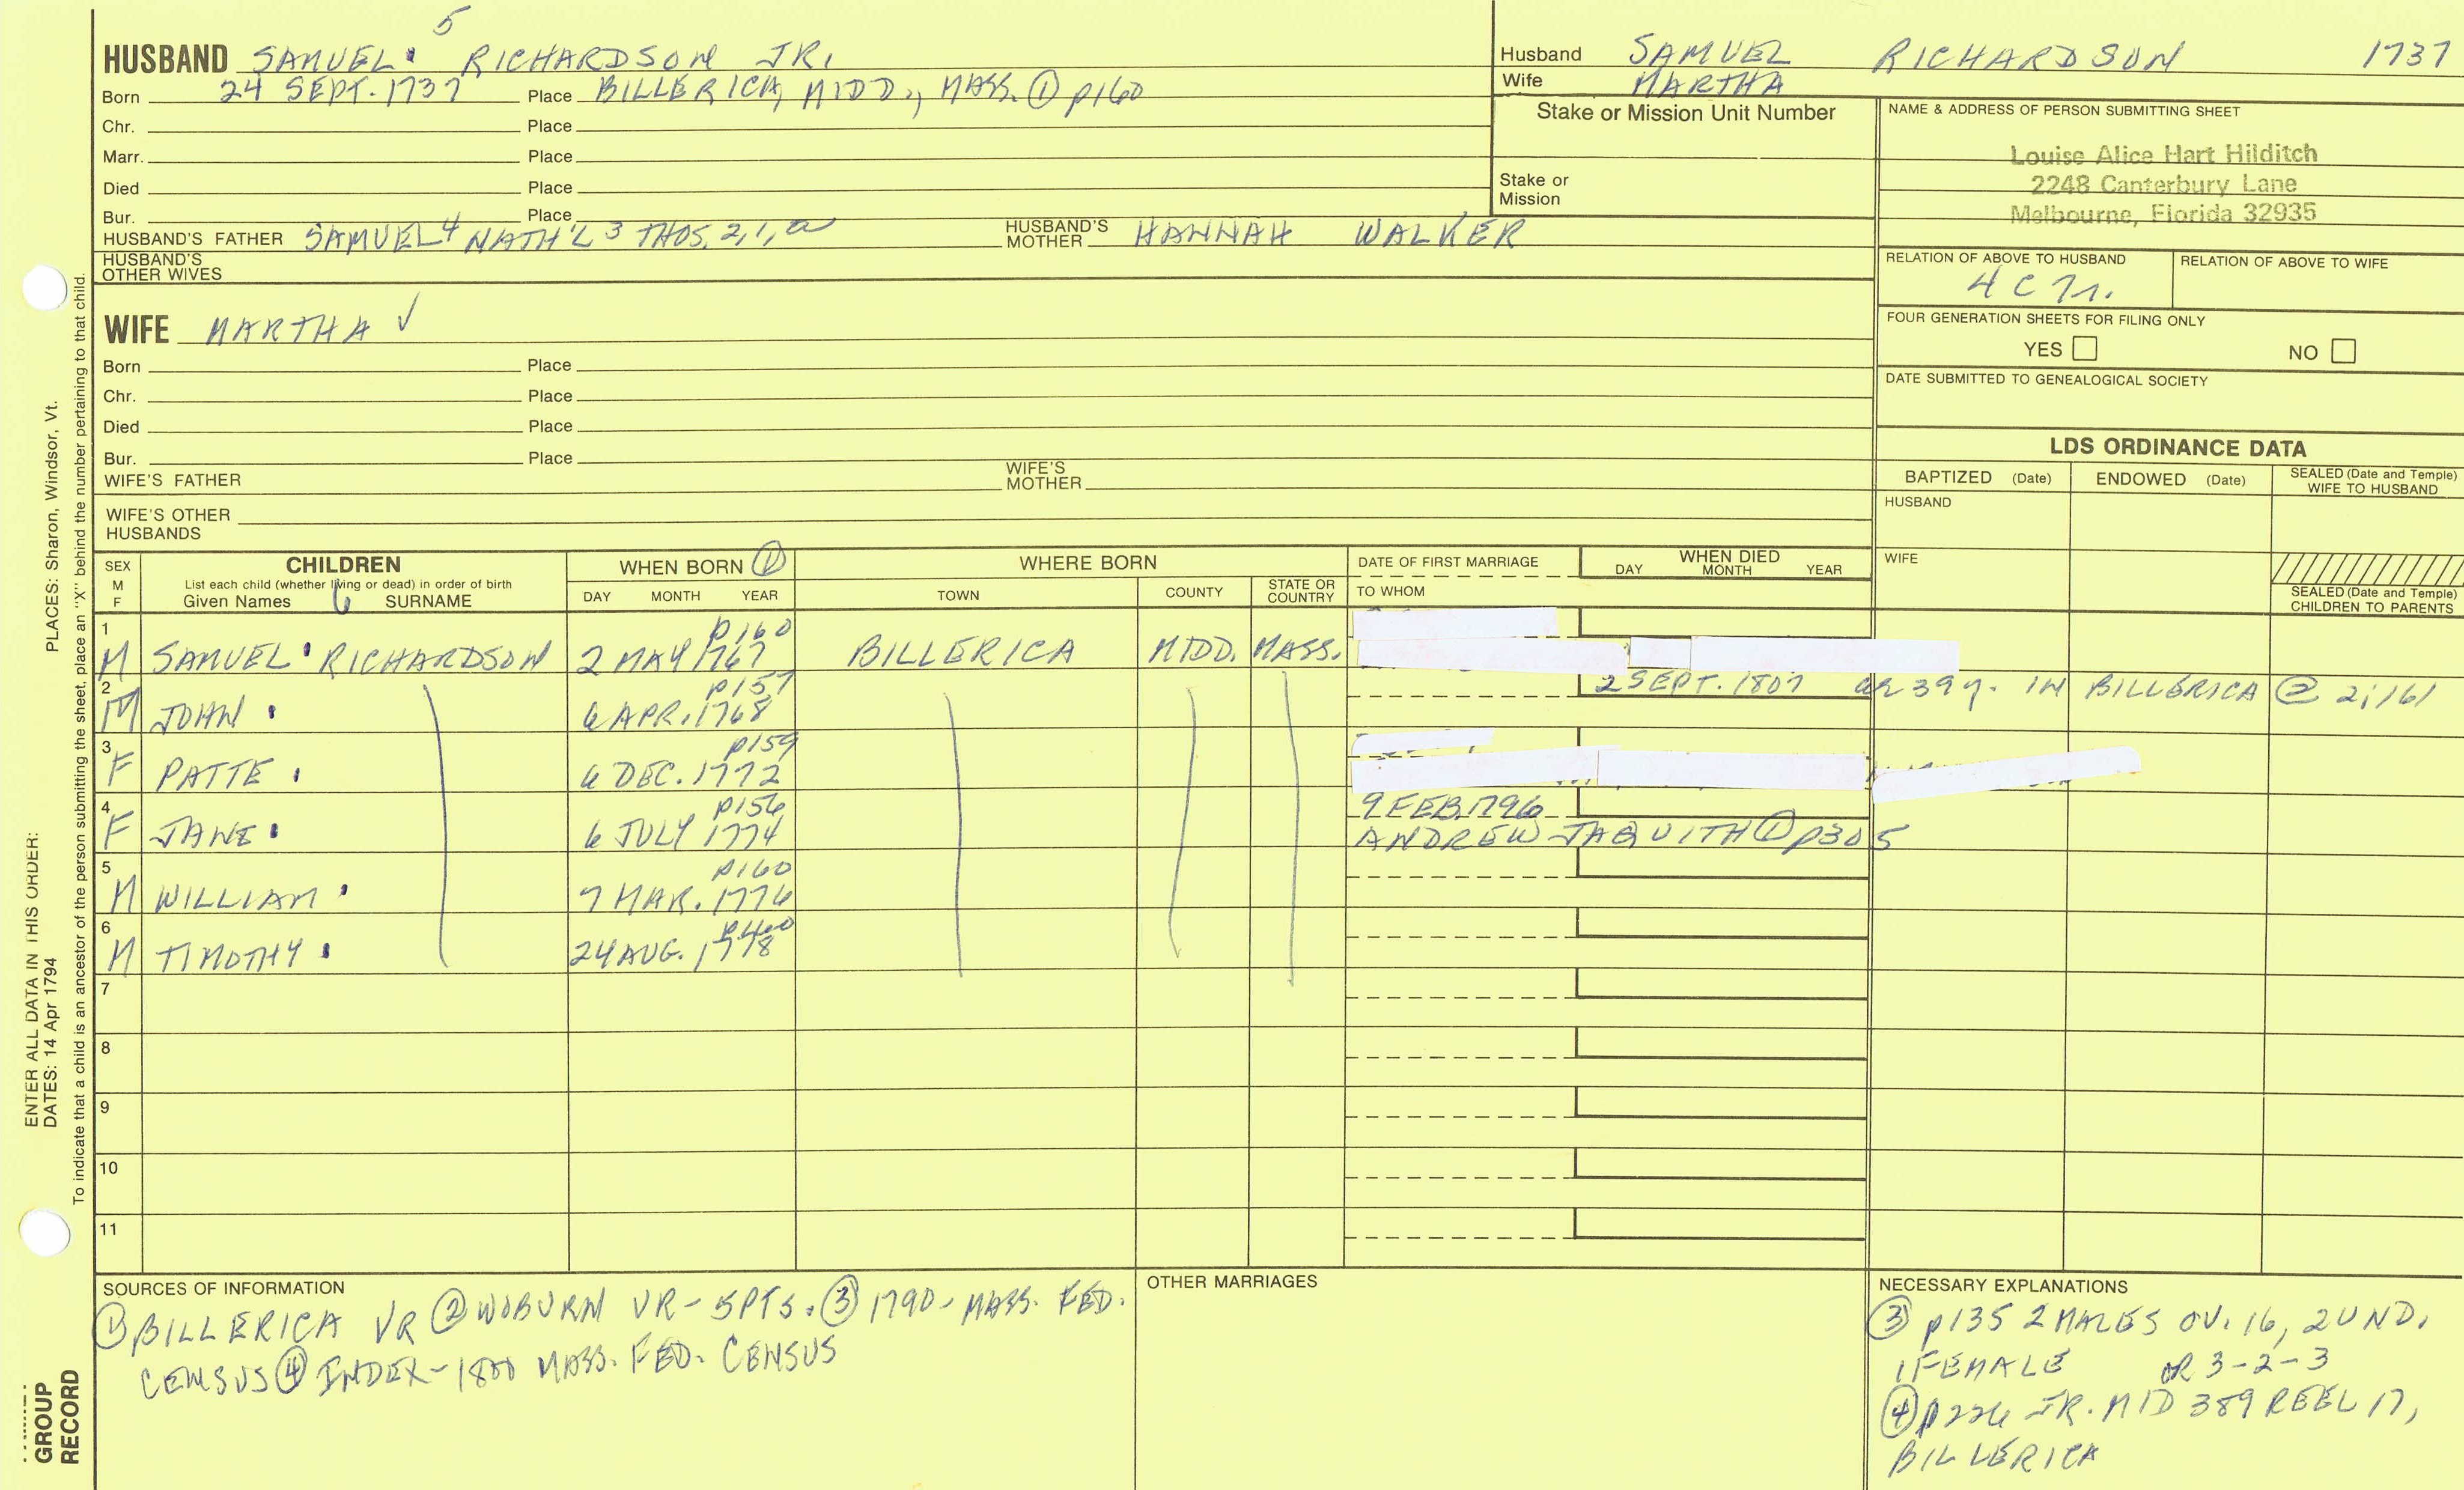 5
HUSBAND SAMUEL RICHARDSON JR.
Born 24 SEPT. 1737 Place BILLERICA, MIDD., MASS. ① p160
Chr. Place
Marr. Place
Died Place
Bur. Place
HUSBAND'S FATHER SAMUEL 4 NATH'L 3 THOS. 2, 1, a HUSBAND'S MOTHER HANNAH WALKER
HUSBAND'S OTHER WIVES
WIFE MARTHA ✓
Born Place
Chr. Place
Died Place
Bur. Place
WIFE'S FATHER WIFE'S MOTHER
WIFE'S OTHER HUSBANDS
Husband SAMUEL RICHARDSON 1737
Wife MARTHA
Stake or Mission Unit Number
Stake or Mission
NAME & ADDRESS OF PERSON SUBMITTING SHEET
Louise Alice Hart Hilditch
2248 Canterbury Lane
Melbourne, Florida 32935
RELATION OF ABOVE TO HUSBAND RELATION OF ABOVE TO WIFE
4 C
FOUR GENERATION SHEETS FOR FILING ONLY
YES NO
DATE SUBMITTED TO GENEALOGICAL SOCIETY
LDS ORDINANCE DATA
BAPTIZED (Date) ENDOWED (Date) SEALED (Date and Temple) WIFE TO HUSBAND
HUSBAND
WIFE
SEALED (Date and Temple) CHILDREN TO PARENTS
SEX M F CHILDREN WHEN BORN ① WHERE BORN DATE OF FIRST MARRIAGE WHEN DIED
List each child (whether living or dead) in order of birth
Given Names 6 SURNAME DAY MONTH YEAR TOWN COUNTY STATE OR COUNTRY TO WHOM DAY MONTH YEAR
1 p160
M SAMUEL RICHARDSON 2 MAY 1767 BILLERICA MIDD. MASS.
2 p157 2 SEPT. 1807 ae 39 y. IN BILLERICA ② 2;161
M JOHN 6 APR. 1768
3 p159
F PATTE 6 DEC. 1772
4 p156 9 FEB. 1796
F JANE 6 JULY 1774 ANDREW JAQUITH ① p305
5 p160
M WILLIAM 7 MAR. 1776
6
M TIMOTHY 24 AUG. 1778
7
8
9
10
11
SOURCES OF INFORMATION
① BILLERICA VR ② WOBURN VR - 5PTS. ③ 1790 - MASS. FED.
CENSUS ④ INDEX - 1800 MASS. FED. CENSUS
OTHER MARRIAGES
NECESSARY EXPLANATIONS
③ p135 2 MALES OV. 16, 2 UND.
1 FEMALE OR 3-2-3
④ p226 JR. MID 389 REEL 17,
BILLERICA
PLACES: Sharon, Windsor, Vt.
To indicate that a child is an ancestor of the person submitting the sheet, place an "X" behind the number pertaining to that child.
ENTER ALL DATA IN THIS ORDER:
DATES: 14 Apr 1794
GROUP
RECORD